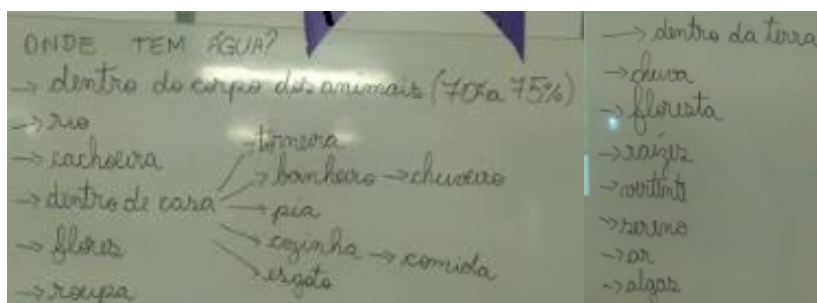 ONDE TEM ÁGUA?
→ dentro do corpo dos animais (70% a 75%)
→ rio
→ cachoeira
→ dentro de casa
→ torneira
→ banheiro → chuveiro
→ pia
→ cozinha → comida
→ esgoto
→ flores
→ roupa
→ dentro da terra
→ chuva
→ floresta
→ raízes
→ vertente
→ sereno
→ ar
→ algas